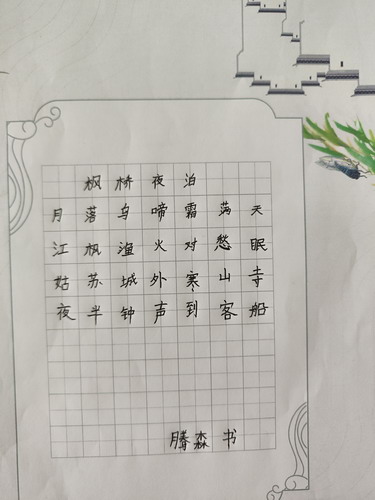 枫桥夜泊
月落乌啼霜满天
江枫渔火对愁眠
姑苏城外寒山寺
夜半钟声到客船
腾森书